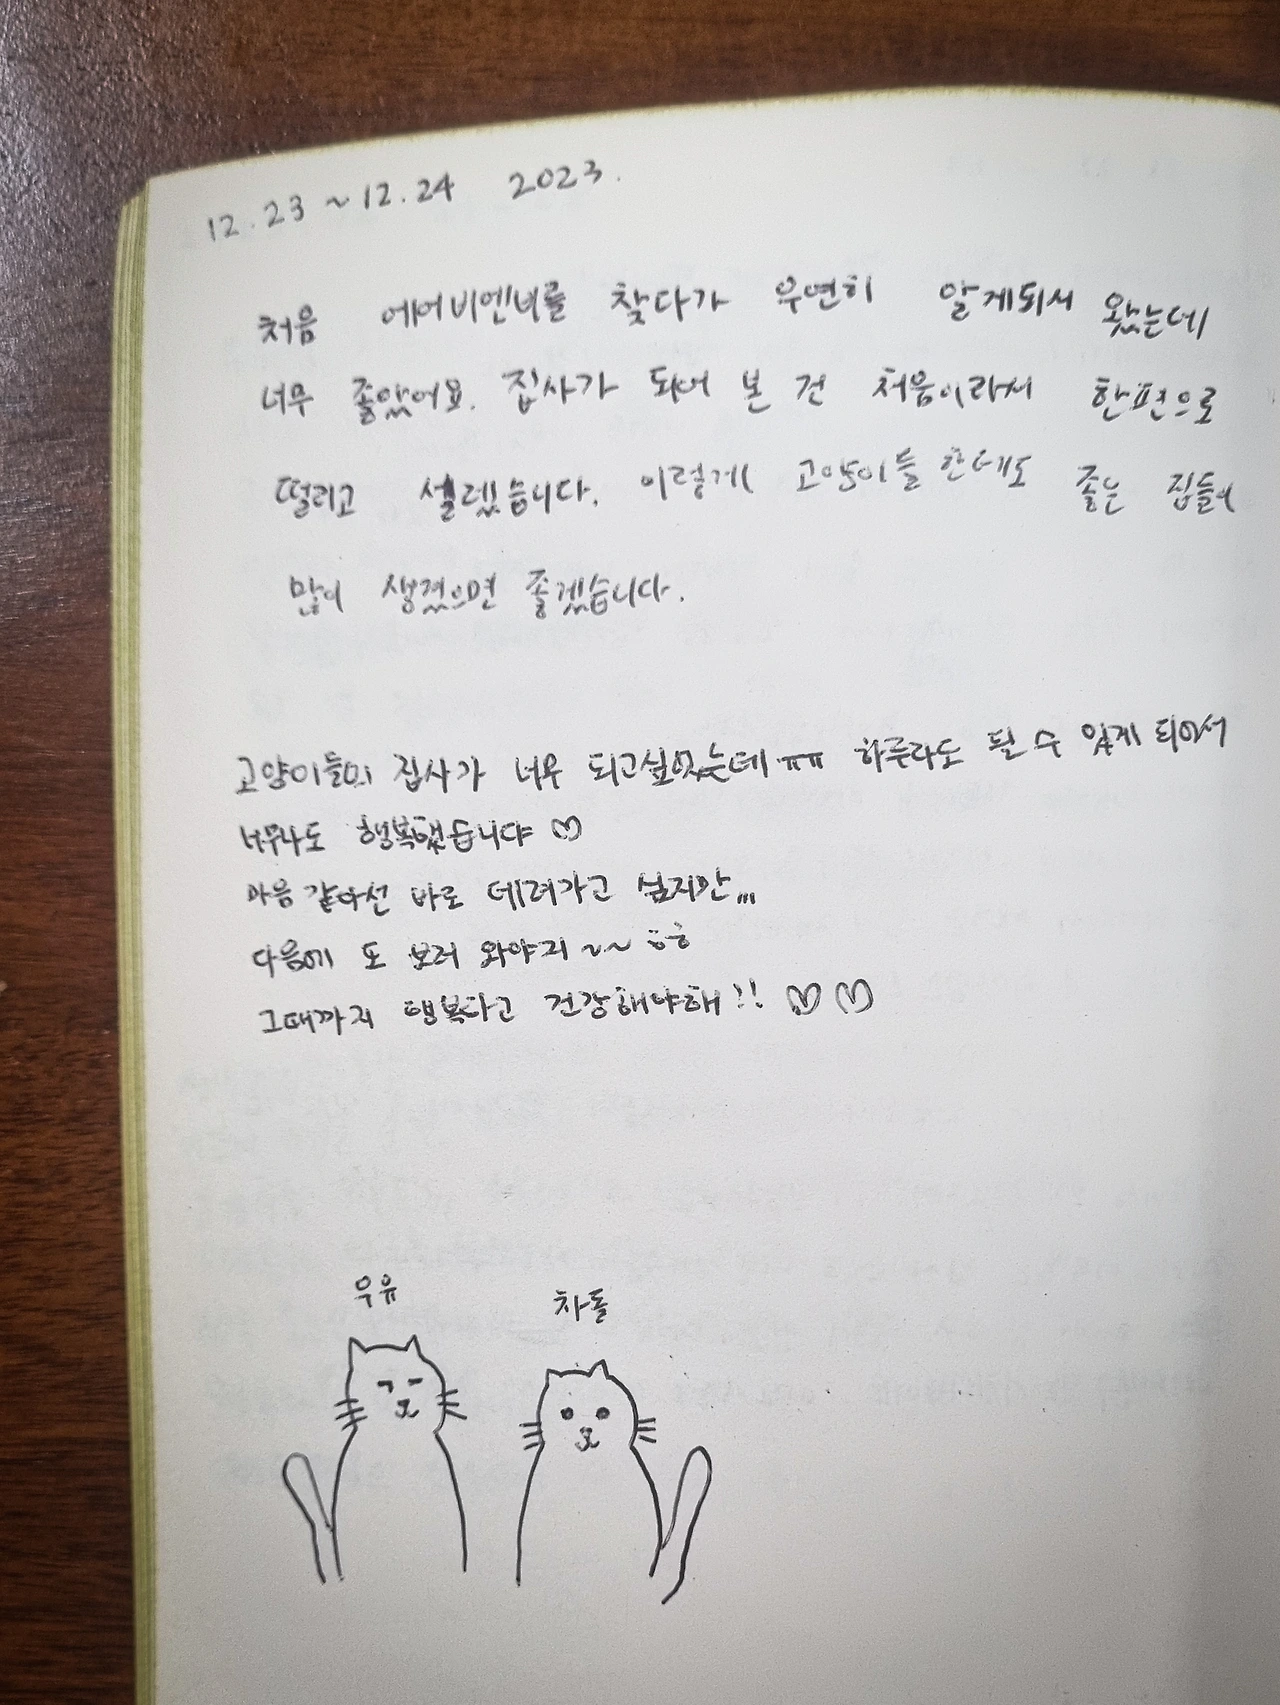 12.23 ~ 12.24 2023.
처음 에어비엔비를 찾다가 우연히 알게되서 왔는데
너무 좋았어요. 집사가 되어 본 건 처음이라서 한편으로
떨리고 설렜습니다. 이렇게 고양이들한테도 좋은 집들이
많이 생겼으면 좋겠습니다.
고양이들의 집사가 너무 되고싶었는데 ㅠㅠ 하루라도 될 수 있게 되어서
너무나도 행복했습니다 ♡
마음 같아선 바로 데려가고 싶지만...
다음에 또 보러 와야지 ~~ ㅎㅎ
그때까지 행복하고 건강해야해!! ♡ ♡
우유 차돌